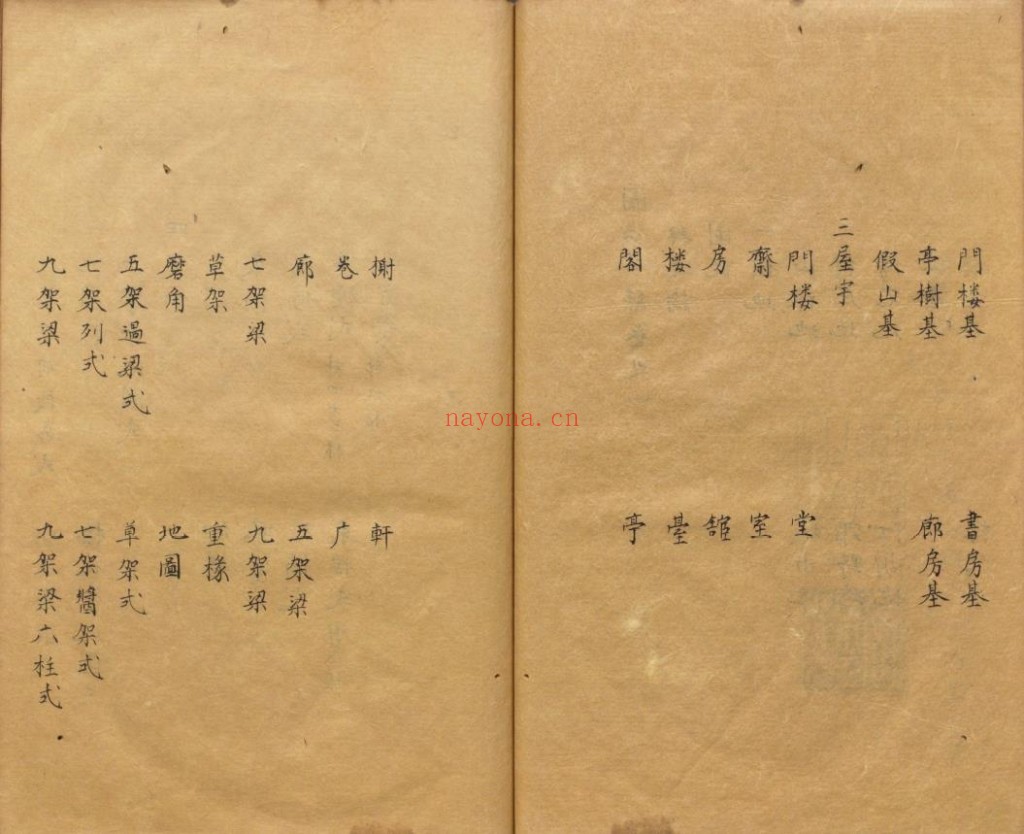 門楼基 書房基
亭樹基 廊房基
假山基
三屋宇
門楼 堂
齋 室
房 舘
楼 臺
閣 亭
榭 軒
卷 广
廊 五架梁
七架梁 九架梁
草架 重椽
磨角 地圖
五架過梁式 草架式
七架列式 七架醬架式
九架梁 九架梁六柱式
nayona.cn